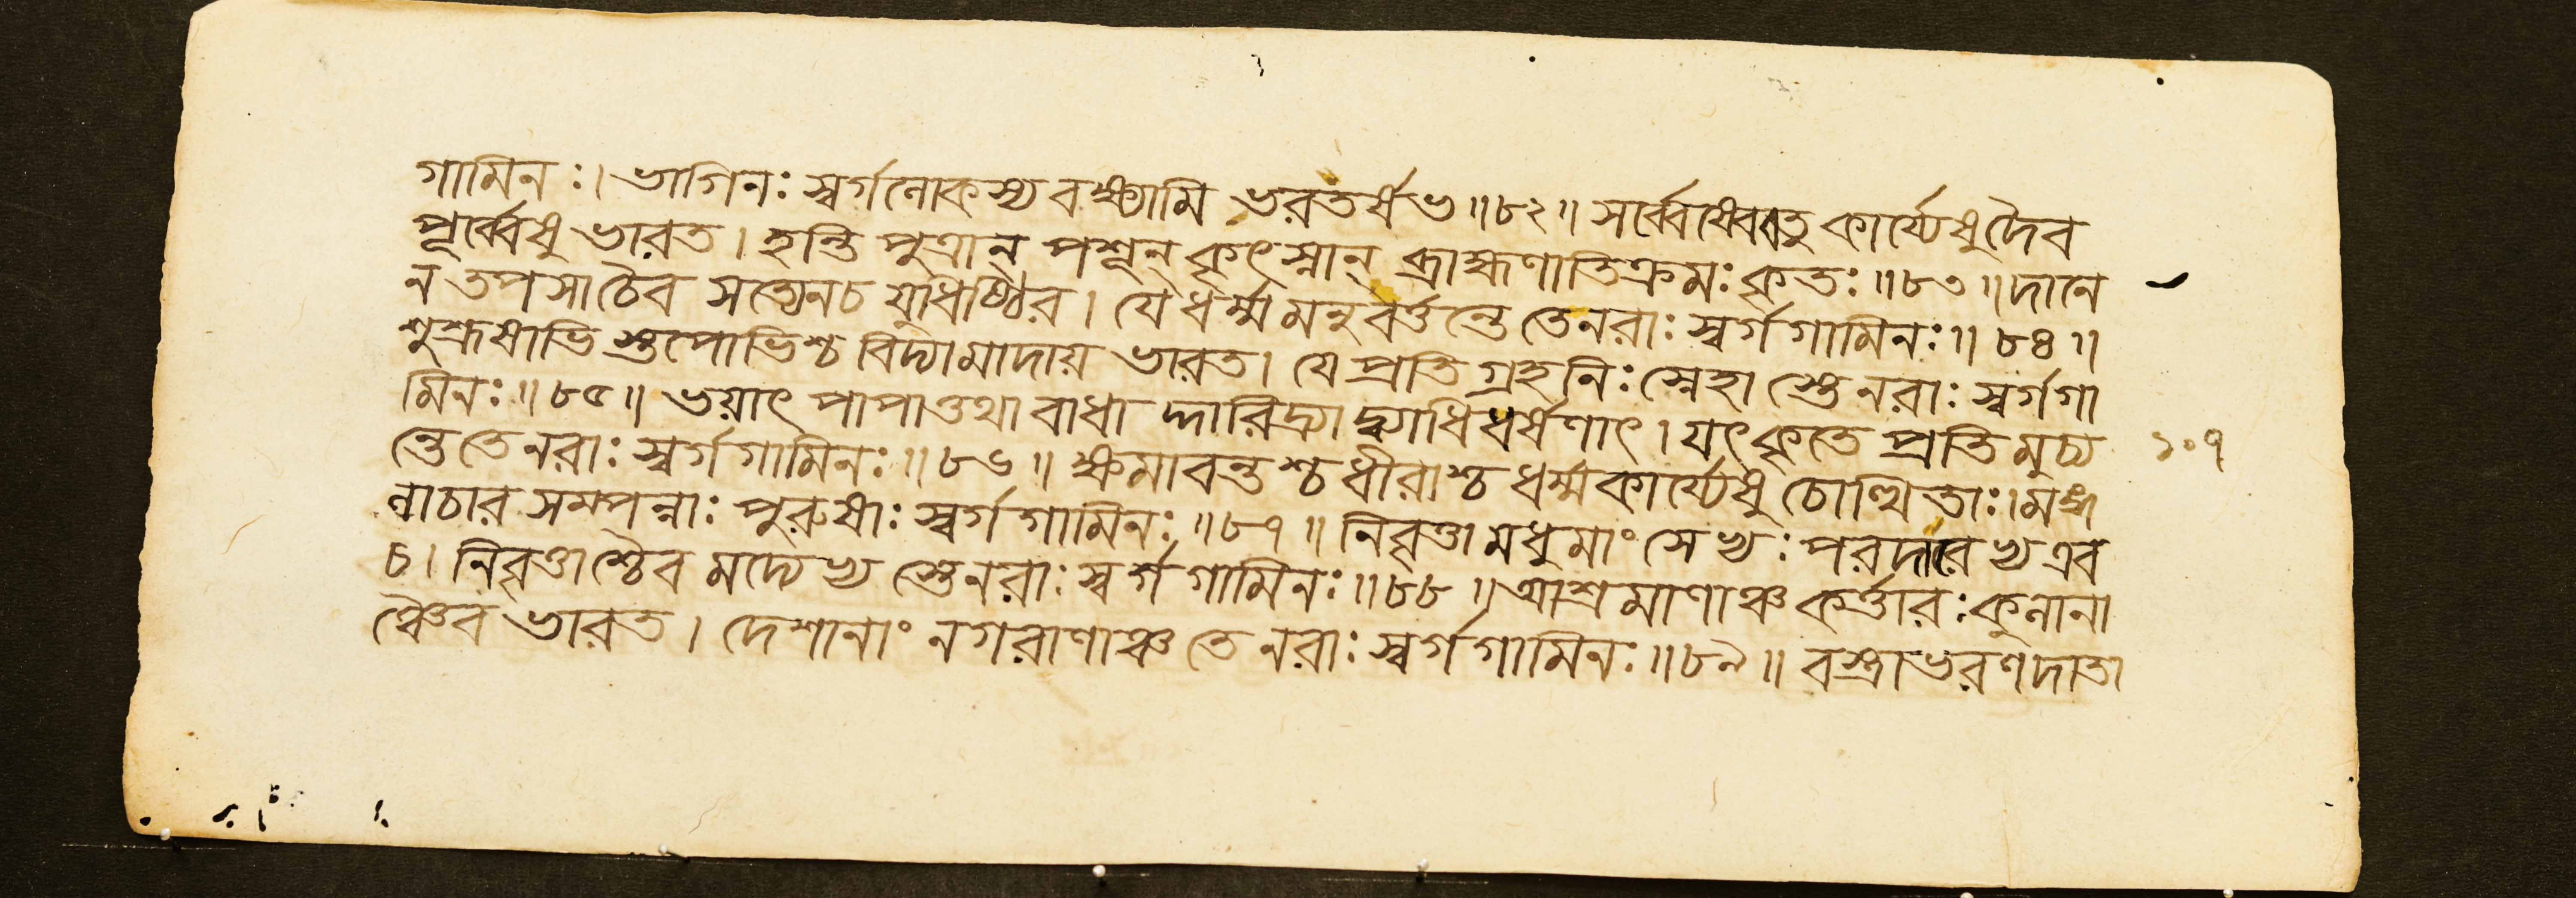 গামিনঃ। ভাগিনঃ স্বর্গলোকস্য বক্ষ্যামি ভরতর্ষভ॥৮২॥ সর্ব্বেষ্বেবতু কার্য্যেষু দৈব
পূর্ব্বেষু ভারত। হন্তি পুত্রান্ পশূন্ কৃৎস্নান্ ব্রাহ্মণাতিক্রমঃ কৃতঃ॥৮৩॥ দানে
ন তপসা চৈব সত্যেন চ যুধিষ্ঠির। যে ধর্ম্মমনুবর্ত্তন্তে তে নরাঃ স্বর্গগামিনঃ॥৮৪॥
শুশ্রূষাভিস্তপোভিশ্চ বিদ্যামাদায় ভারত। যে প্রতিগ্রহনিঃস্নেহাস্তে নরাঃ স্বর্গগা
মিনঃ॥৮৫॥ ভয়াৎ পাপাত্তথা বাধা দ্দারিদ্র্যাদ্ব্যাধিধর্ষণাৎ। যৎকৃতে প্রতিমুচ্য
ন্তে তে নরাঃ স্বর্গগামিনঃ॥৮৬॥ ক্ষমাবন্তশ্চ ধীরাশ্চ ধর্ম্মকার্য্যেষু চোত্থিতাঃ। মঙ্গ
লাচারসম্পন্নাঃ পুরুষাঃ স্বর্গগামিনঃ॥৮৭॥ নিবৃত্তা মধুমাংসেভ্যঃ পরদারেভ্য এব
চ। নিবৃত্তাশ্চৈব মদ্যেভ্যস্তে নরাঃ স্বর্গগামিনঃ॥৮৮॥ আশ্রমাণাঞ্চ কর্ত্তারঃ কুলানা
ঞ্চৈব ভারত। দেশানাং নগরাণাঞ্চ তে নরাঃ স্বর্গগামিনঃ॥৮৯॥ বস্ত্রাভরণদাতা
১০৭